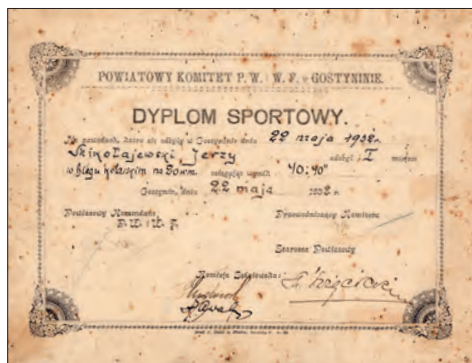 POWIATOWY KOMITET P. W. i W. F. w GOSTYNINIE.
DYPLOM SPORTOWY.
Na zawodach, które się odbyły w Gostyninie dnia 22 maja 1932 r.
Mikołajewski Jerzy zdobył I miejsce
w biegu kolarskim na osiągając wynik 40:40"
Gostynin, dnia 22 maja 1932 r.
Powiatowy Komendant Przewodniczący Komitetu
P. W. i W. F.
Starosta Powiatowy
Komisja Sędziowska: